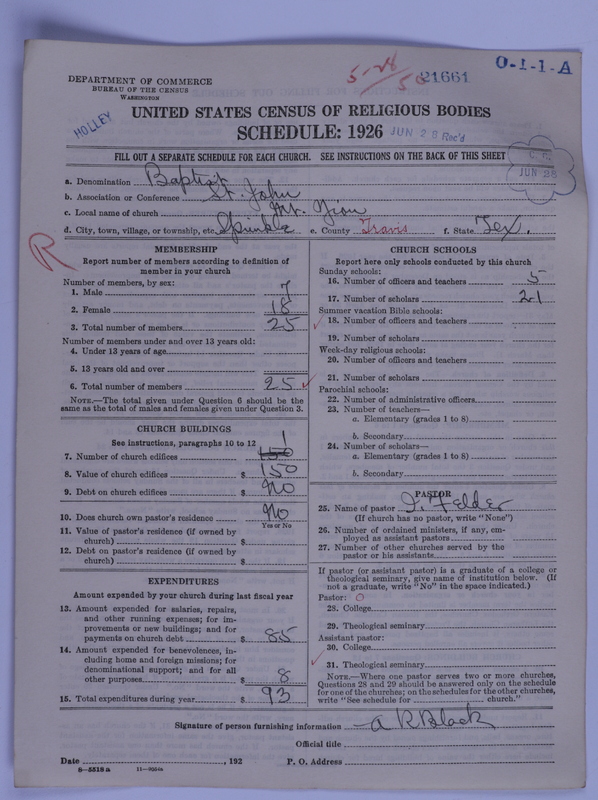 5-28
50
21661
O-1-1-A
DEPARTMENT OF COMMERCE
BUREAU OF THE CENSUS
WASHINGTON
HOLLEY
UNITED STATES CENSUS OF RELIGIOUS BODIES
SCHEDULE: 1926
JUN 28 Rec'd
FILL OUT A SEPARATE SCHEDULE FOR EACH CHURCH. SEE INSTRUCTIONS ON THE BACK OF THIS SHEET
JUN 28
a. Denomination Baptist
b. Association or Conference St. John
c. Local name of church Mt. Zion
d. City, town, village, or township, etc. Sprinkle e. County Travis f. State Tex.
R
MEMBERSHIP
Report number of members according to definition of
member in your church
Number of members, by sex:
1. Male 7
2. Female 18
3. Total number of members 25
Number of members under and over 13 years old:
4. Under 13 years of age
5. 13 years old and over
6. Total number of members 25
NOTE.—The total given under Question 6 should be the
same as the total of males and females given under Question 3.
CHURCH BUILDINGS
See instructions, paragraphs 10 to 12
7. Number of church edifices 150 1
8. Value of church edifices $ 150
9. Debt on church edifices $ No
10. Does church own pastor's residence No
Yes or No
11. Value of pastor's residence (if owned by
church) $
12. Debt on pastor's residence (if owned by
church) $
EXPENDITURES
Amount expended by your church during last fiscal year
13. Amount expended for salaries, repairs,
and other running expenses; for im-
provements or new buildings; and for
payments on church debt $ 85
14. Amount expended for benevolences, in-
cluding home and foreign missions; for
denominational support; and for all
other purposes $ 8
15. Total expenditures during year $ 93
CHURCH SCHOOLS
Report here only schools conducted by this church
Sunday schools:
16. Number of officers and teachers 5
17. Number of scholars 21
Summer vacation Bible schools:
18. Number of officers and teachers
19. Number of scholars
Week-day religious schools:
20. Number of officers and teachers
21. Number of scholars
Parochial schools:
22. Number of administrative officers
23. Number of teachers—
a. Elementary (grades 1 to 8)
b. Secondary
24. Number of scholars—
a. Elementary (grades 1 to 8)
b. Secondary
PASTOR
25. Name of pastor Felder
(If church has no pastor, write "None")
26. Number of ordained ministers, if any, em-
ployed as assistant pastors
27. Number of other churches served by the
pastor or his assistants
If pastor (or assistant pastor) is a graduate of a college or
theological seminary, give name of institution below. (If
not a graduate, write "No" in the space indicated.)
Pastor: O
28. College
29. Theological seminary
Assistant pastor:
30. College
31. Theological seminary
NOTE.—Where one pastor serves two or more churches,
Questions 28 and 29 should be answered only on the schedule
for one of the churches; on the schedules for the other churches,
write "See schedule for church."
Signature of person furnishing information A R Black
Official title
Date , 192 P. O. Address
8—5518a 11—9054a